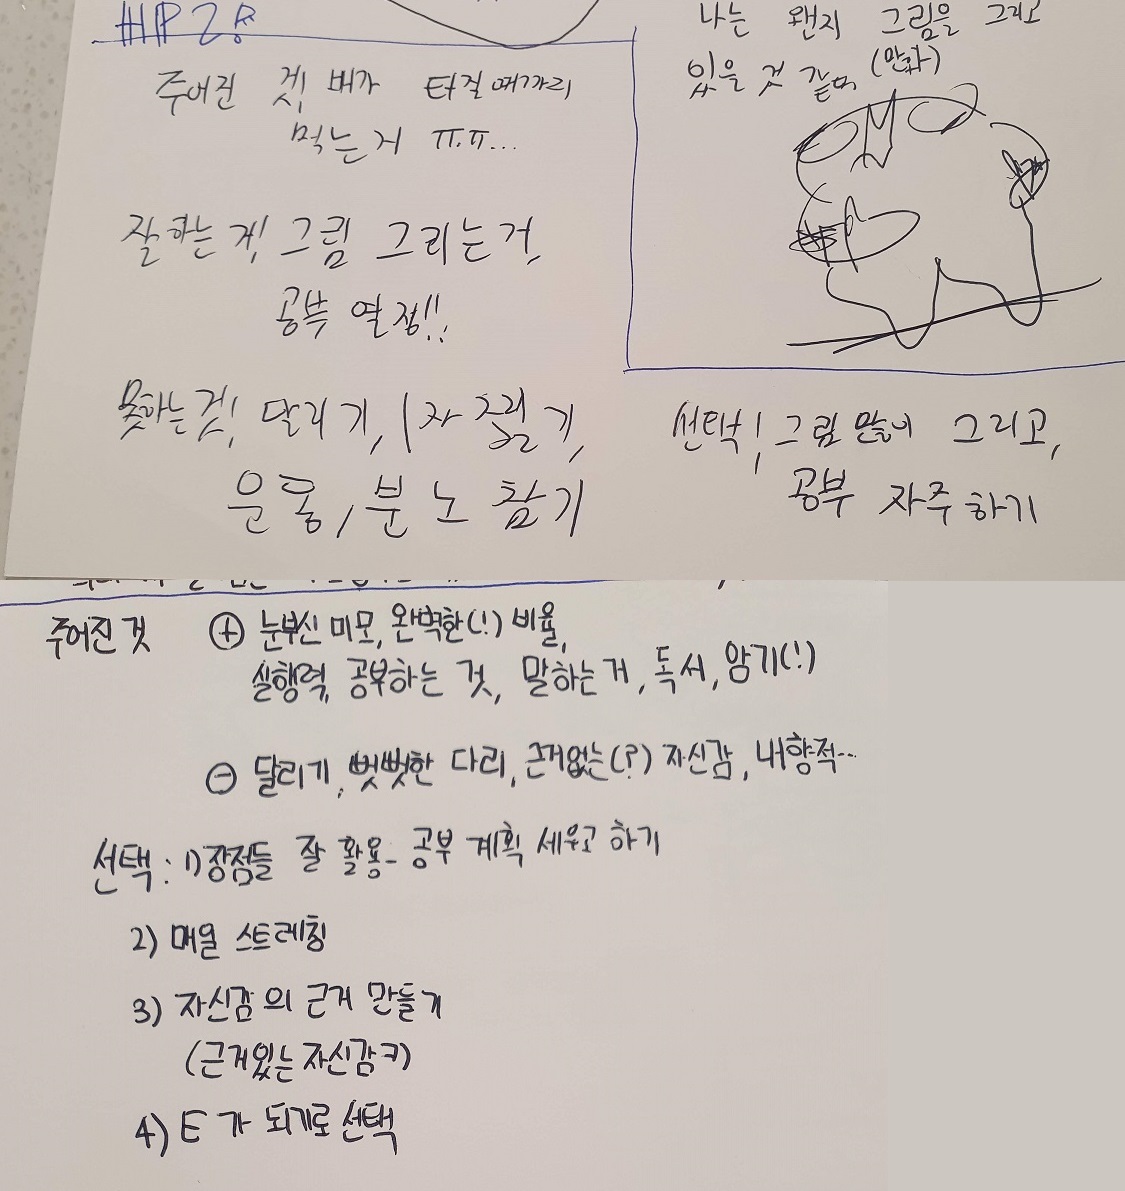 주어진 것! 배가 터질때까지
먹는거 ㅠ.ㅠ...
잘하는 거! 그림 그리는거,
공부 열정!!
못하는것! 달리기,
운동, 분노 참기
나는 왠지 그림을 그리고
있을 것 같다 (만화)
선택! 그림 많이 그리고,
공부 자주 하기
주어진 것 ⊕ 눈부신 미모, 완벽한(!) 비율,
실행력, 공부하는 것, 말하는거, 독서, 암기(!)
⊖ 달리기, 뻣뻣한 다리, 근거없는(?) 자신감, 내향적...
선택: 1) 장점들 잘 활용- 공부 계획 세우고 하기
2) 매일 스트레칭
3) 자신감의 근거 만들기
(근거있는 자신감ㅋ)
4) E가 되기로 선택